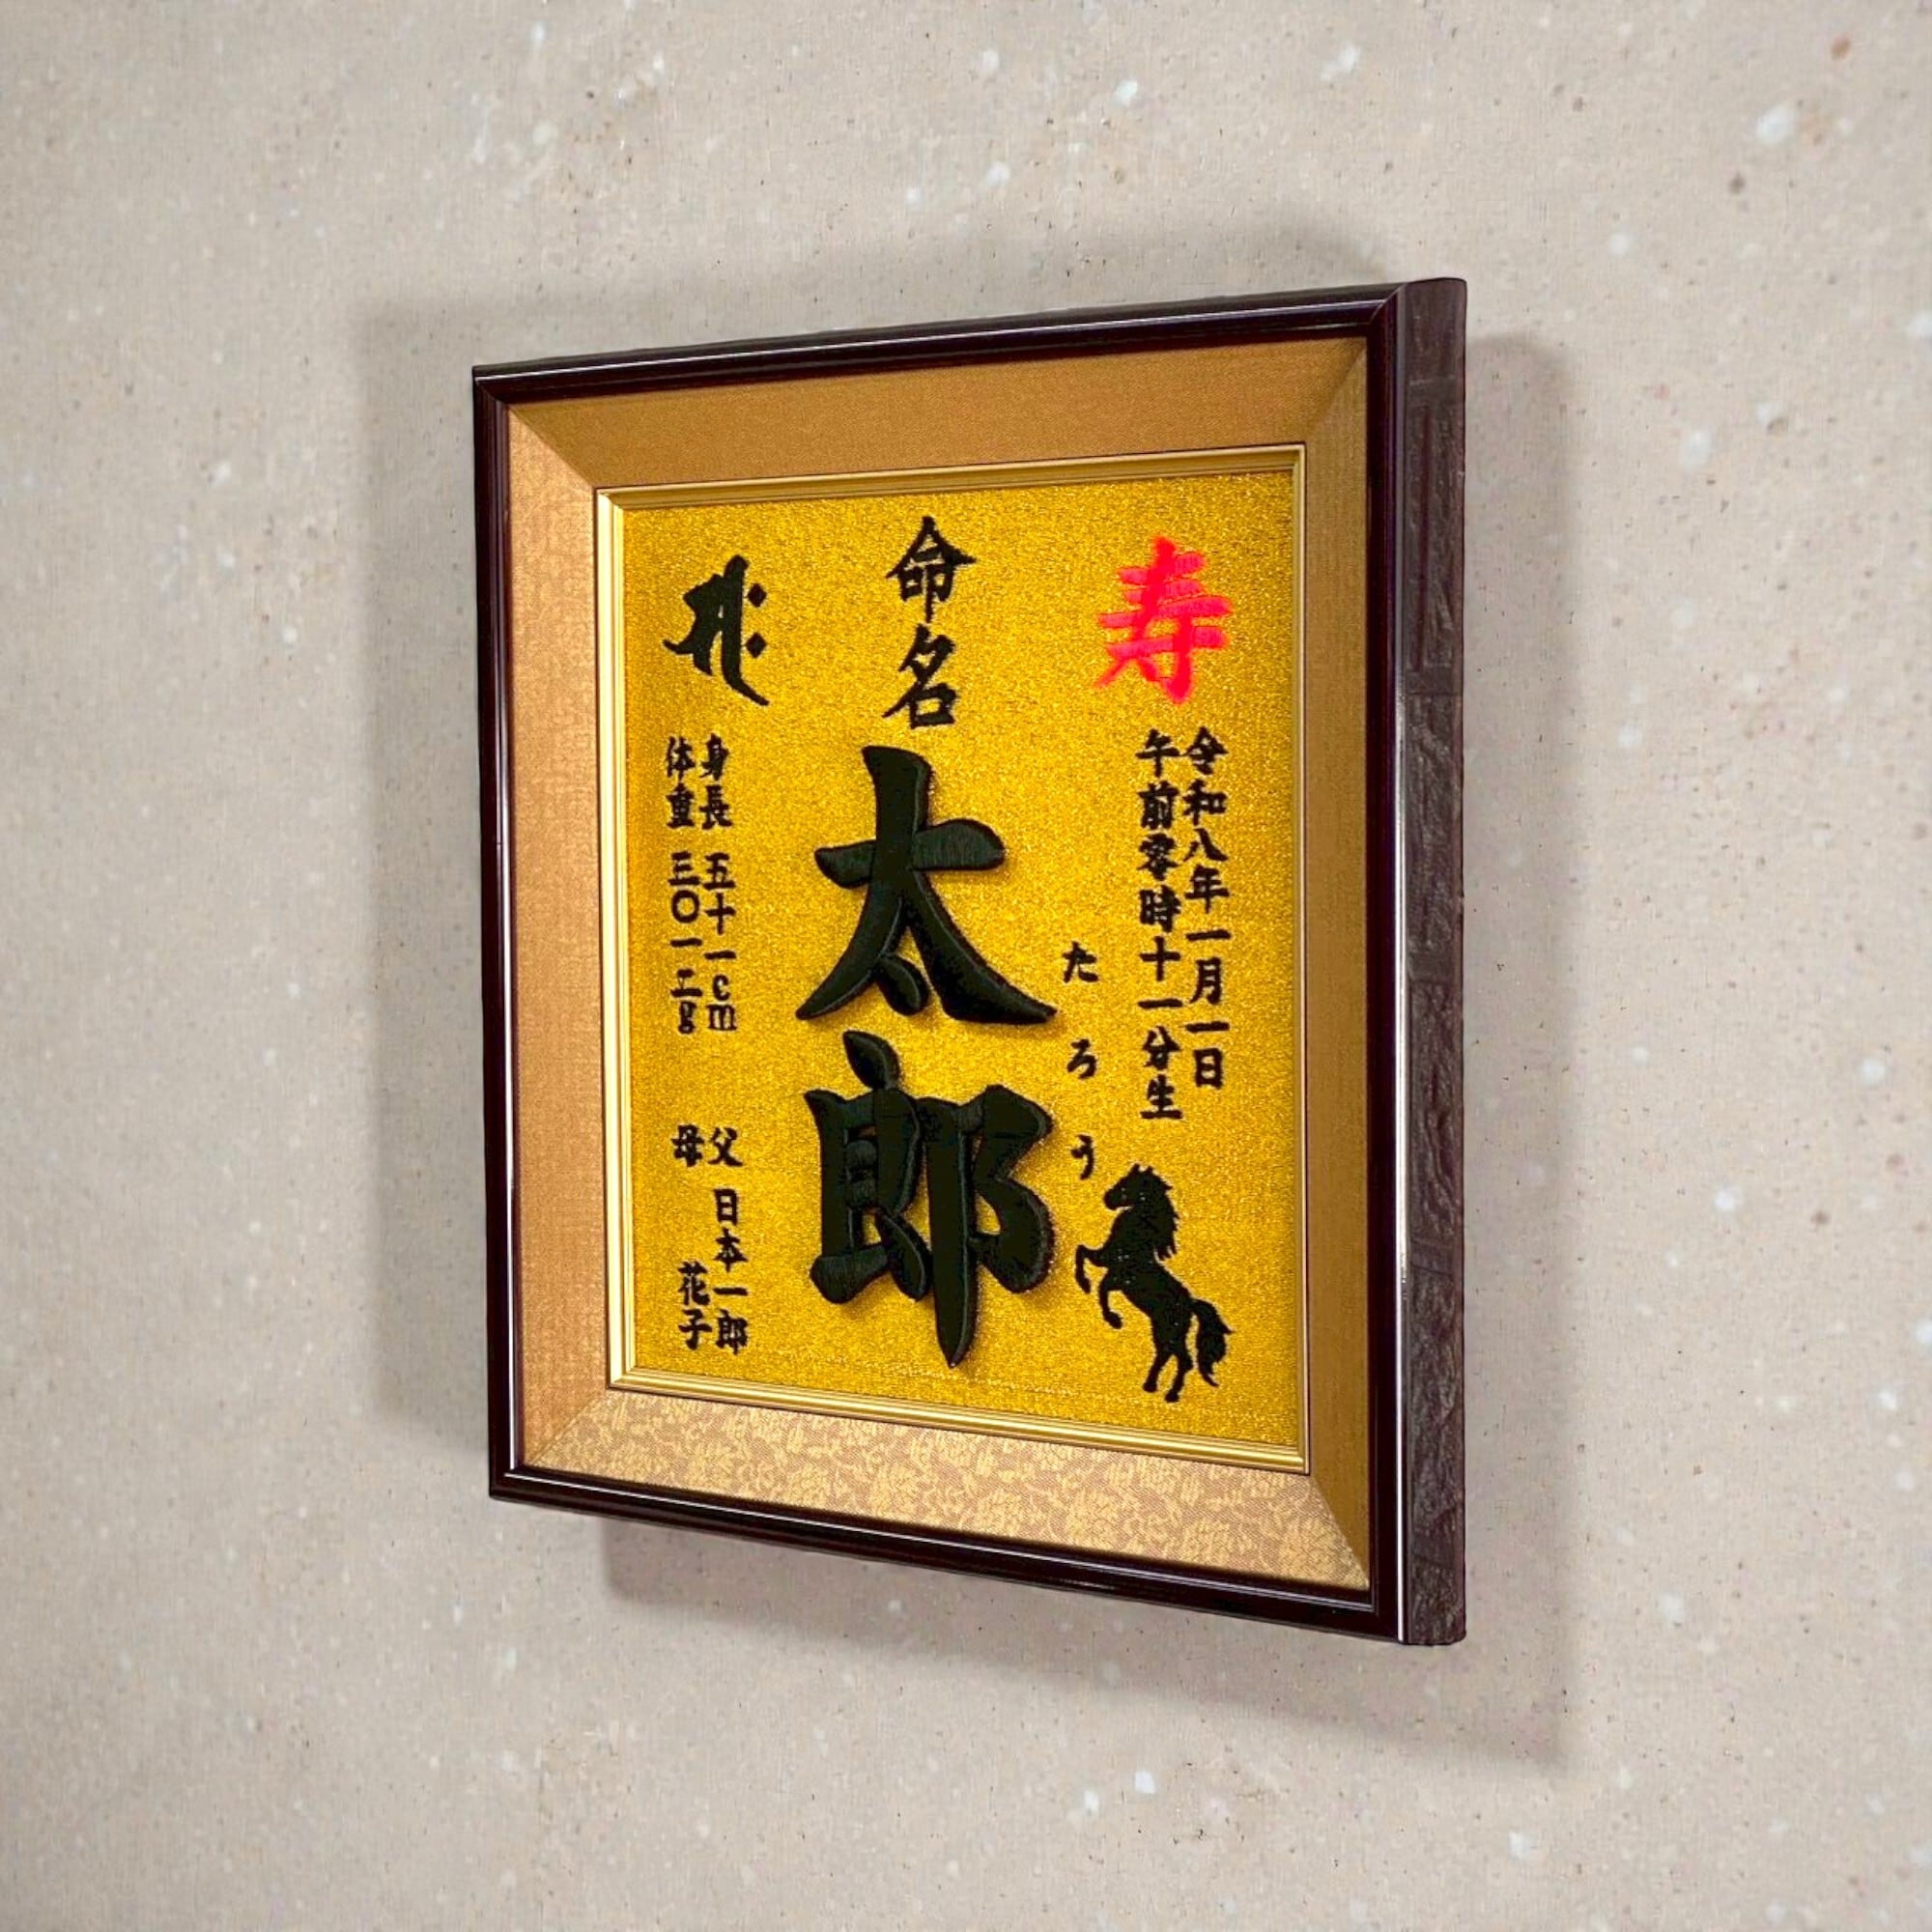 寿
令和八年一月一日
午前零時十一分生
命名
太郎
たろう
身長 五十一cm
体重 三〇一二g
父 日本一郎
母 花子